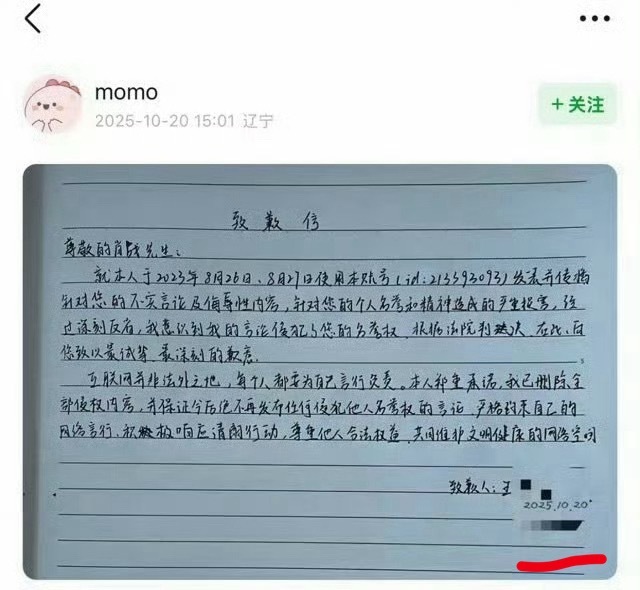 momo
2025-10-20 15:01 辽宁
+关注
致歉信
尊敬的肖战先生:
就本人于2023年8月26日、8月27日使用本账号(id:213393093)发表并传播
针对您的不实言论及侮辱性内容,针对您的个人名誉和精神造成的严重损害,经
过深刻反省,我意识到我的言论侵犯了您的名誉权,根据法院判决,在此,向
您致以最诚挚、最深刻的歉意。
互联网并非法外之地,每个人都要为自己言行负责。本人郑重承诺,我已删除全
部侵权内容,并保证今后绝不再发布任何侵犯他人名誉权的言论,严格约束自己的
网络言行,积极响应清朗行动,尊重他人合法权益,共同维护文明健康的网络空间
致歉人:王
2025.10.20